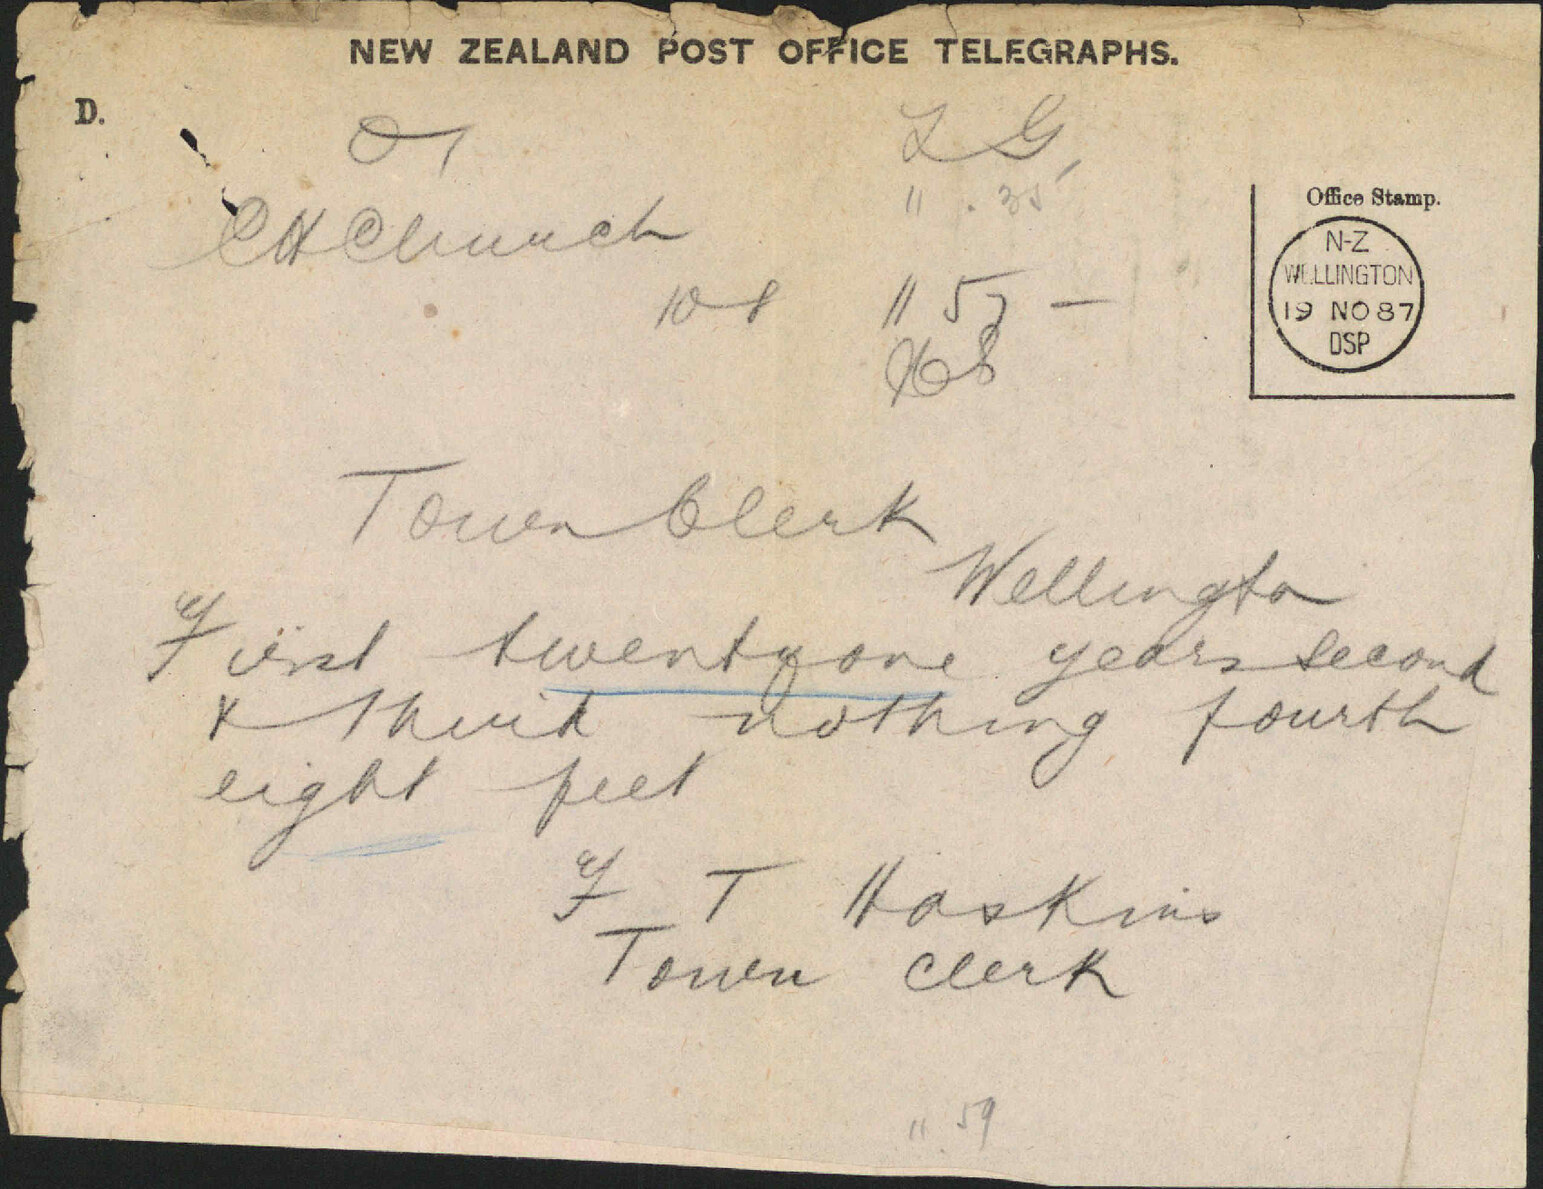 NEW ZEALAND POST OFFICE TELEGRAPHS.
D.
L G
11.35
CHChurch
Office Stamp.
N-Z
WELLINGTON
19 NO 87
DSP
11 57 —
Town Clerk
Wellington
First twentyone years second
& third nothing fourth
eight feet
F T Haskins
Town Clerk
11.59